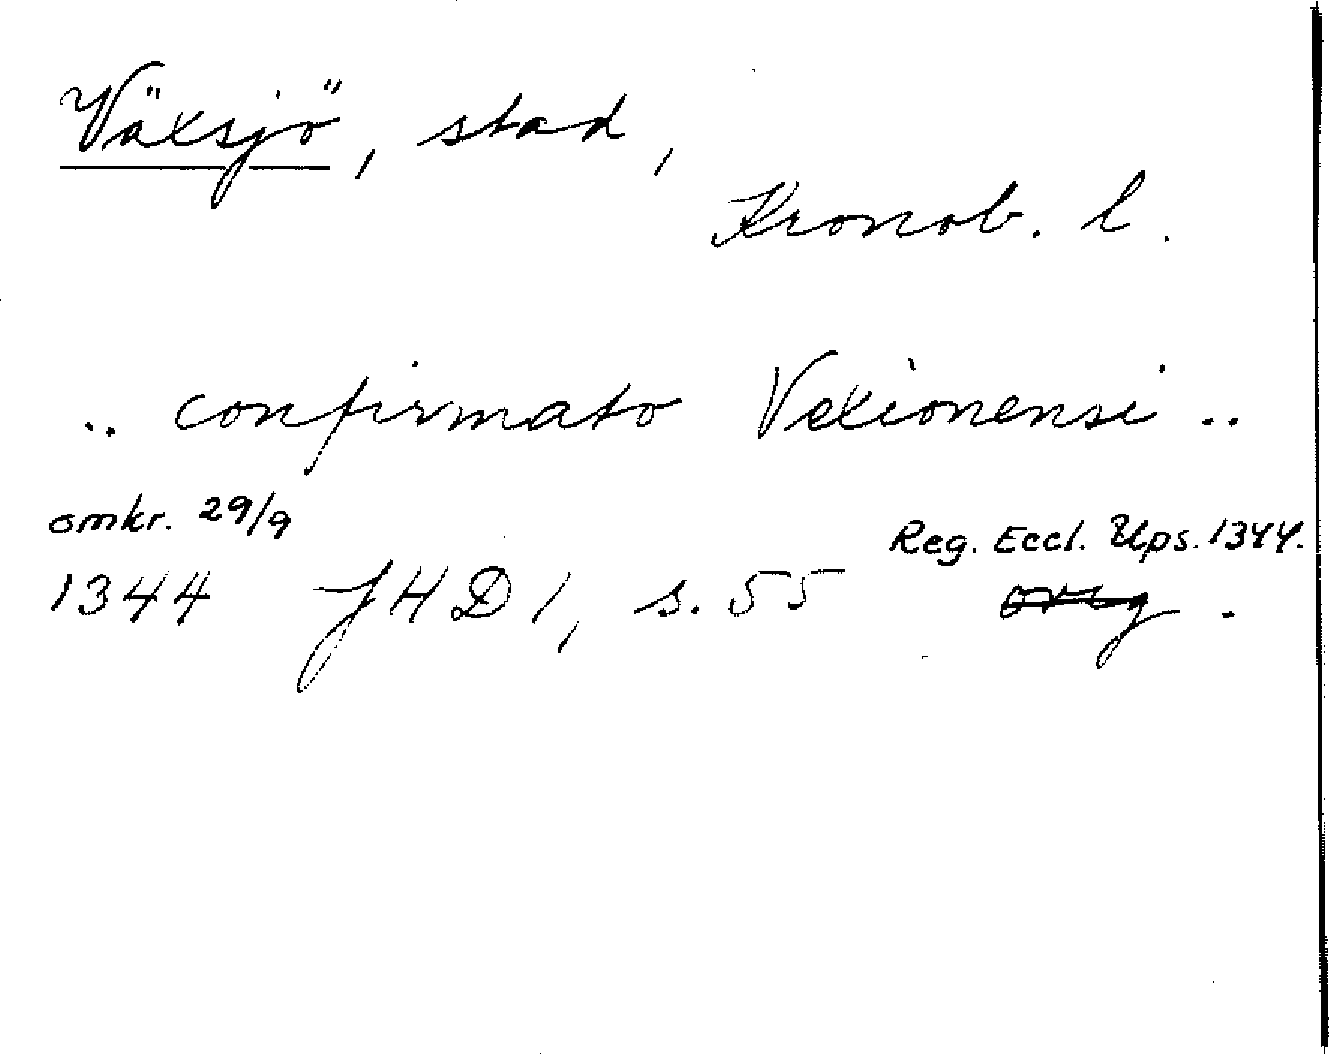 Växsjö, stad,
Kronob. l.
.. confirmato Vexionensi ..
omkr. 29/9
Reg. Eccl. Ups. 1344.
1344 JHD 1, s. 55 orig.